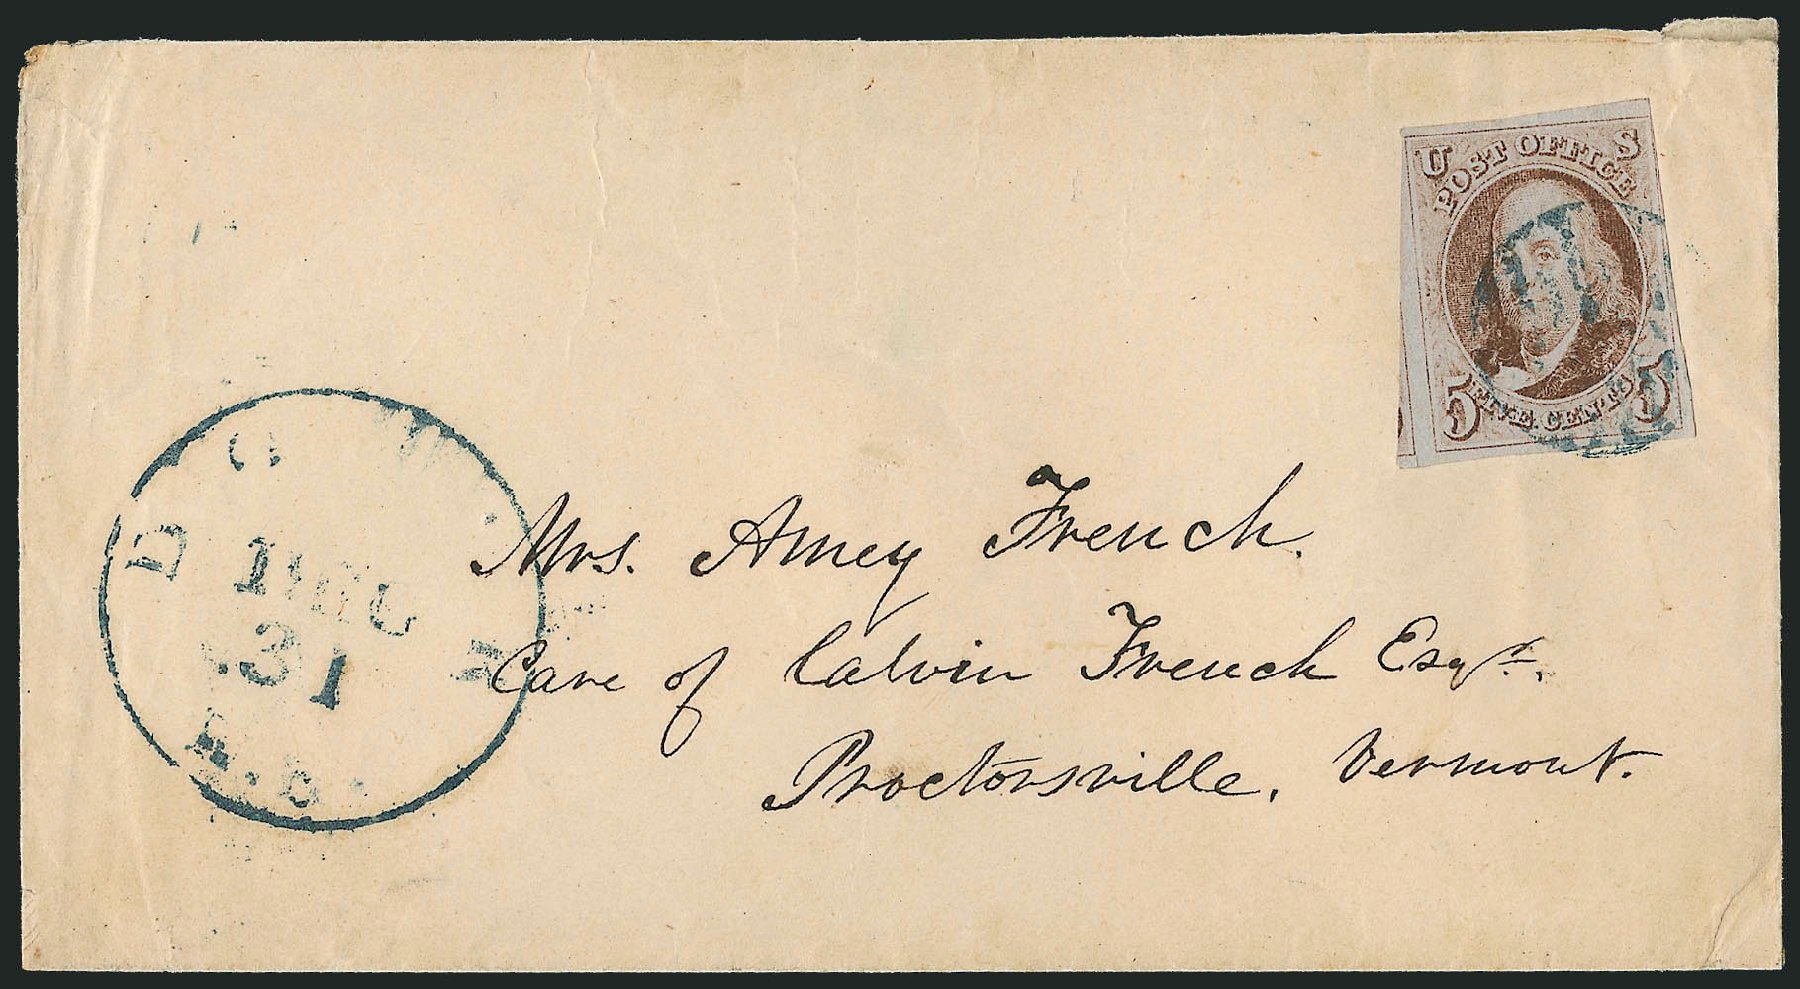 U S
POST OFFICE
5 FIVE CENTS 5
DEC
31
Mrs. Amey French.
Care of Calvin French Esqr.
Proctorsville, Vermont.